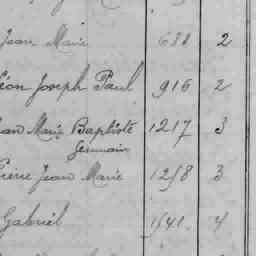 Jean Marie 688 2
éon Joseph Paul 916 2
an Marie Baptiste 1217 3
Germain
Pierre Jean Marie 1258 3
Gabriel 1541 4